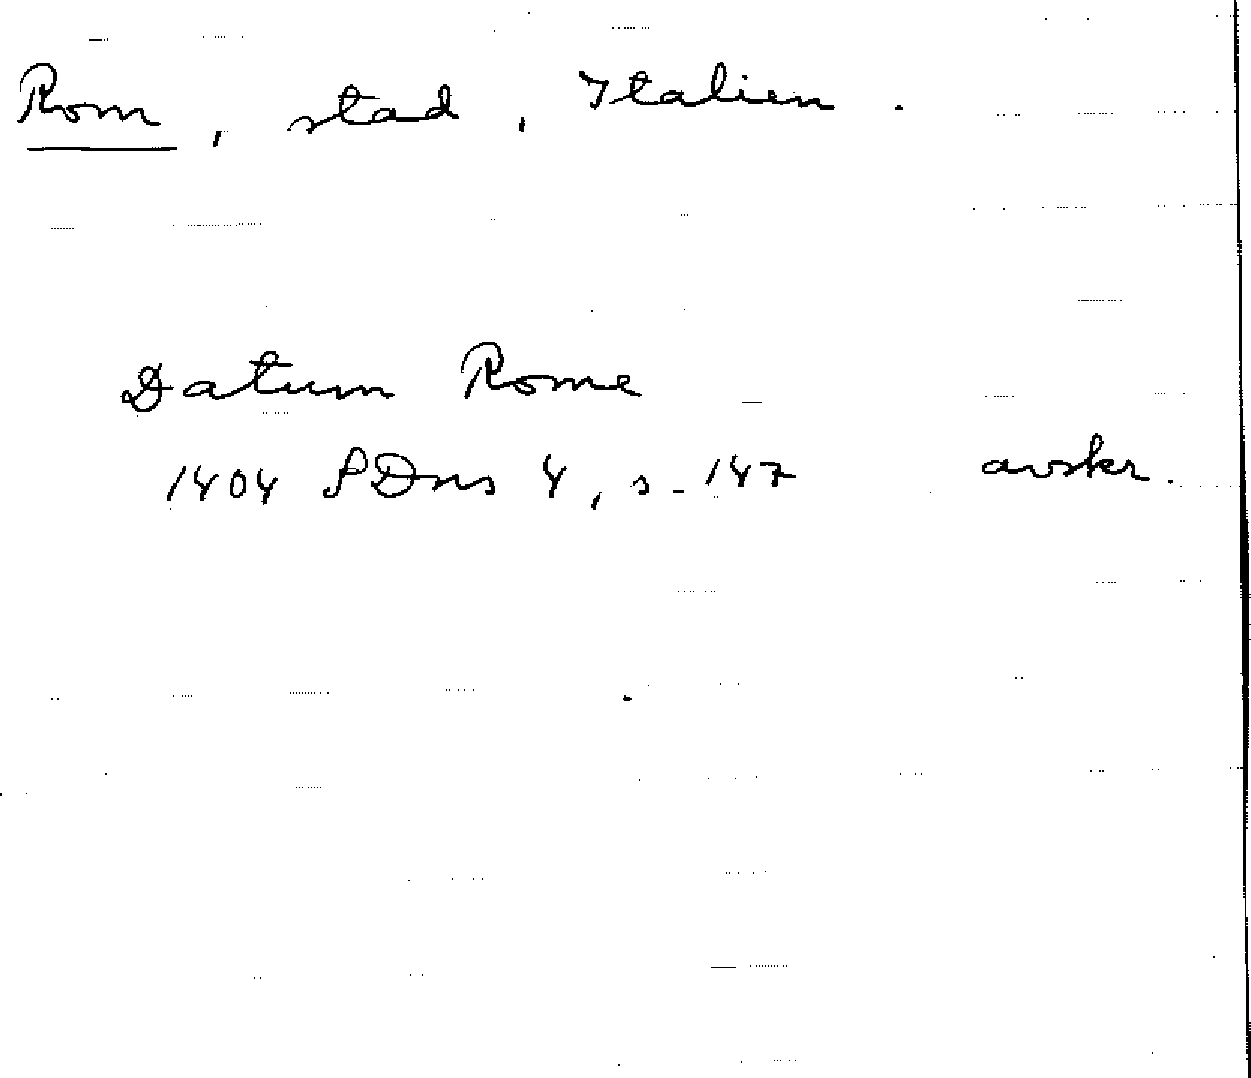 Rom, stad, Italien.
Datum Rome
1404 SDns 4, s. 147 avskr.